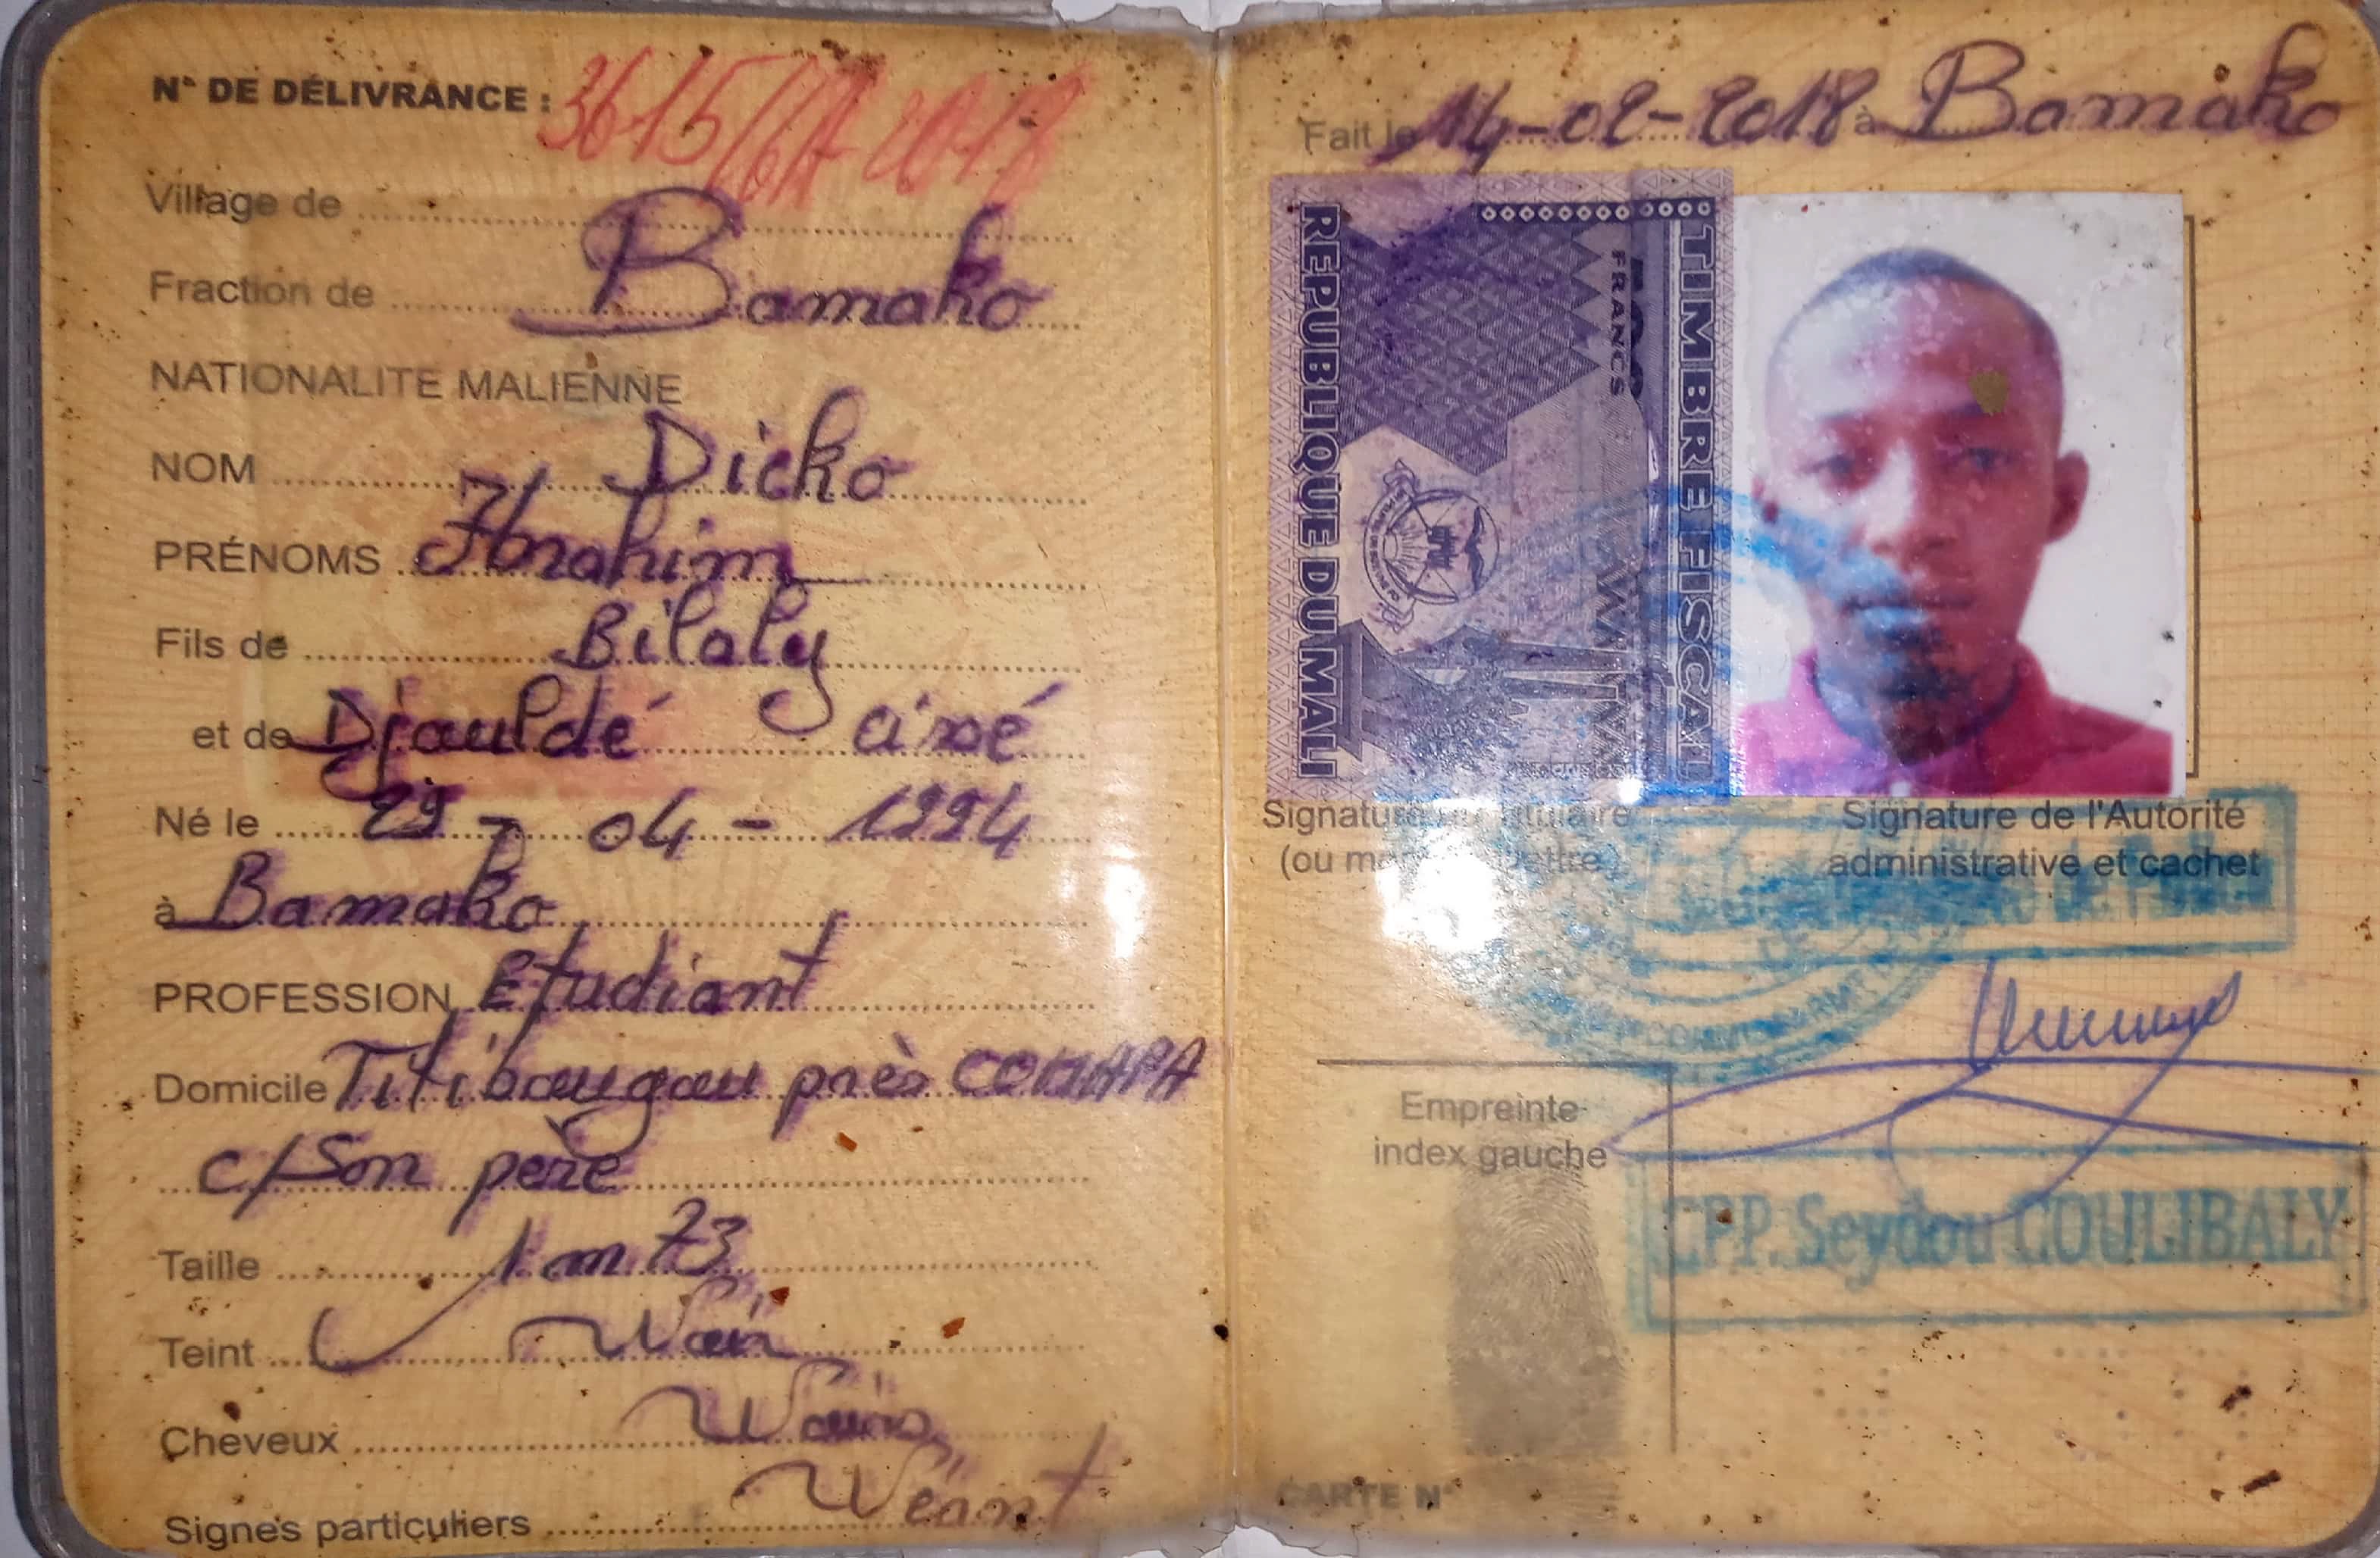 N° DE DÉLIVRANCE : 3615/
Village de
Fraction de Bamako
NATIONALITE MALIENNE
NOM Dicko
PRÉNOMS Ibrahim
Fils de Bilaly
et de Djouldé
Né le 29 - 04 - 1994
à Bamako
PROFESSION Etudiant
Domicile Titibougou près COMAPA
c/Son pere
Taille 1m73
Teint Noir
Cheveux Noirs
Signes particuliers Néant
Fait le 14-02-2018 à Bamako
REPUBLIQUE DU MALI
FRANCS
TIMBRE FISCAL
Signature du titulaire
Signature de l'Autorité
administrative et cachet
Empreinte
index gauche
CPP. Seydou COULIBALY
CARTE N°